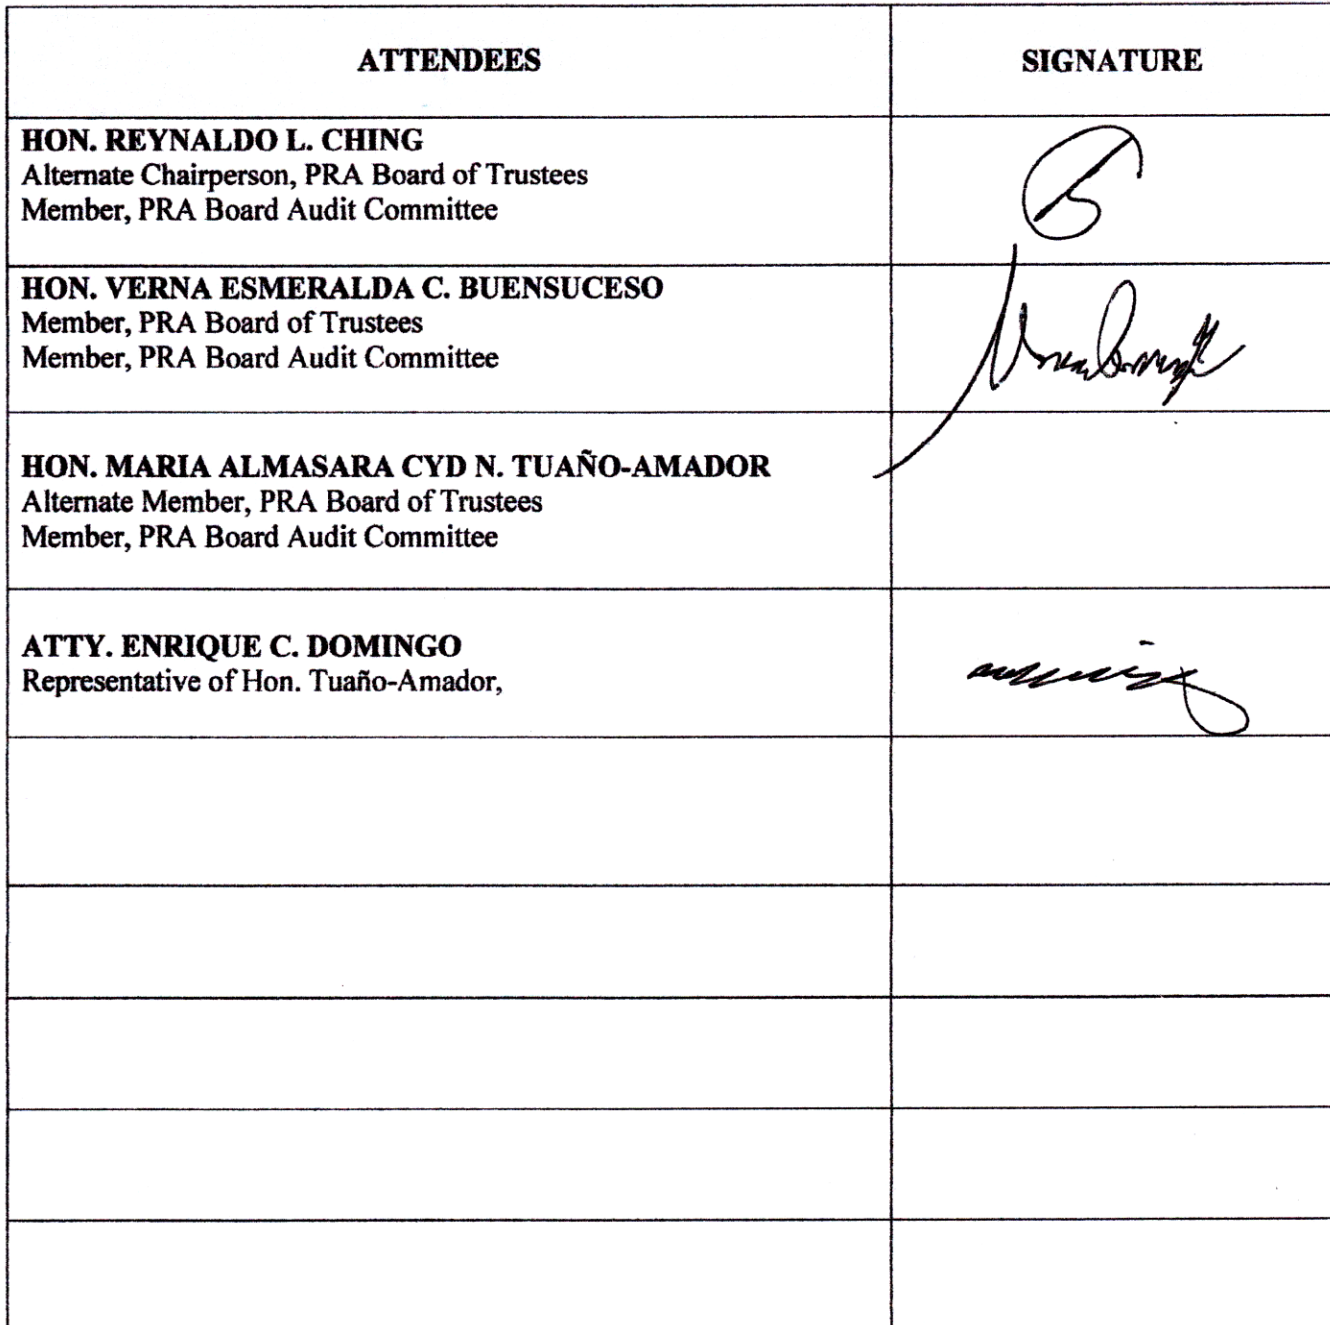 ATTENDEES
SIGNATURE
HON. REYNALDO L. CHING
Alternate Chairperson, PRA Board of Trustees
Member, PRA Board Audit Committee
HON. VERNA ESMERALDA C. BUENSUCESO
Member, PRA Board of Trustees
Member, PRA Board Audit Committee
HON. MARIA ALMASARA CYD N. TUAÑO-AMADOR
Alternate Member, PRA Board of Trustees
Member, PRA Board Audit Committee
ATTY. ENRIQUE C. DOMINGO
Representative of Hon. Tuaño-Amador,